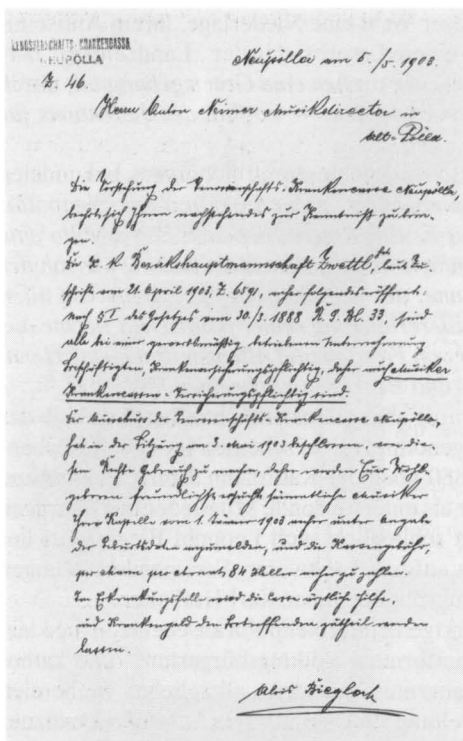 GENOSSENSCHAFTS-KRANKENCASSA
NEUPÖLLA
Z. 46.
Neupölla am 5./5. 1903.
Herrn Anton Musikdirector in
alt. Pölla.
Die Vorstehung der Genossenschafts-Krankencasse Neupölla,
beehrt sich Ihnen nachstehendes zur Kenntniß zu bringen.
Die K. K. Bezirkshauptmannschaft Zwettl, hat
vom 21. April 1903, Z. 6591, anher folgendes eröffnet:
nach § 1 des Gesetzes vom 30/3. 1888 R. G. Bl. 33, sind
alle bei einer gewerbsmäßig betriebenen Unternehmung
Beschäftigten, Krankenversicherungspflichtig, daher auch Musiker
Krankencasse-Versicherungspflichtig sind.
Der Ausschuß der Genossenschafts-Krankencasse Neupölla,
hat in der Sitzung am 3. Mai 1903 beschlossen, von die-
sem Rechte Gebrauch zu machen, daher werden Euer Wohl-
geboren freundlichst ersucht sämmtliche Musiker
Ihrer Kapelle vom 1. Jänner 1903 anher unter Angabe
der Geburtsdaten anzumelden, und die
per 84 Heller anher zu zahlen.
Im Erkrankungsfalle wird die Casse ärztliche Hilfe,
und Krankengeld den Betreffenden zutheil werden
lassen.
Alois